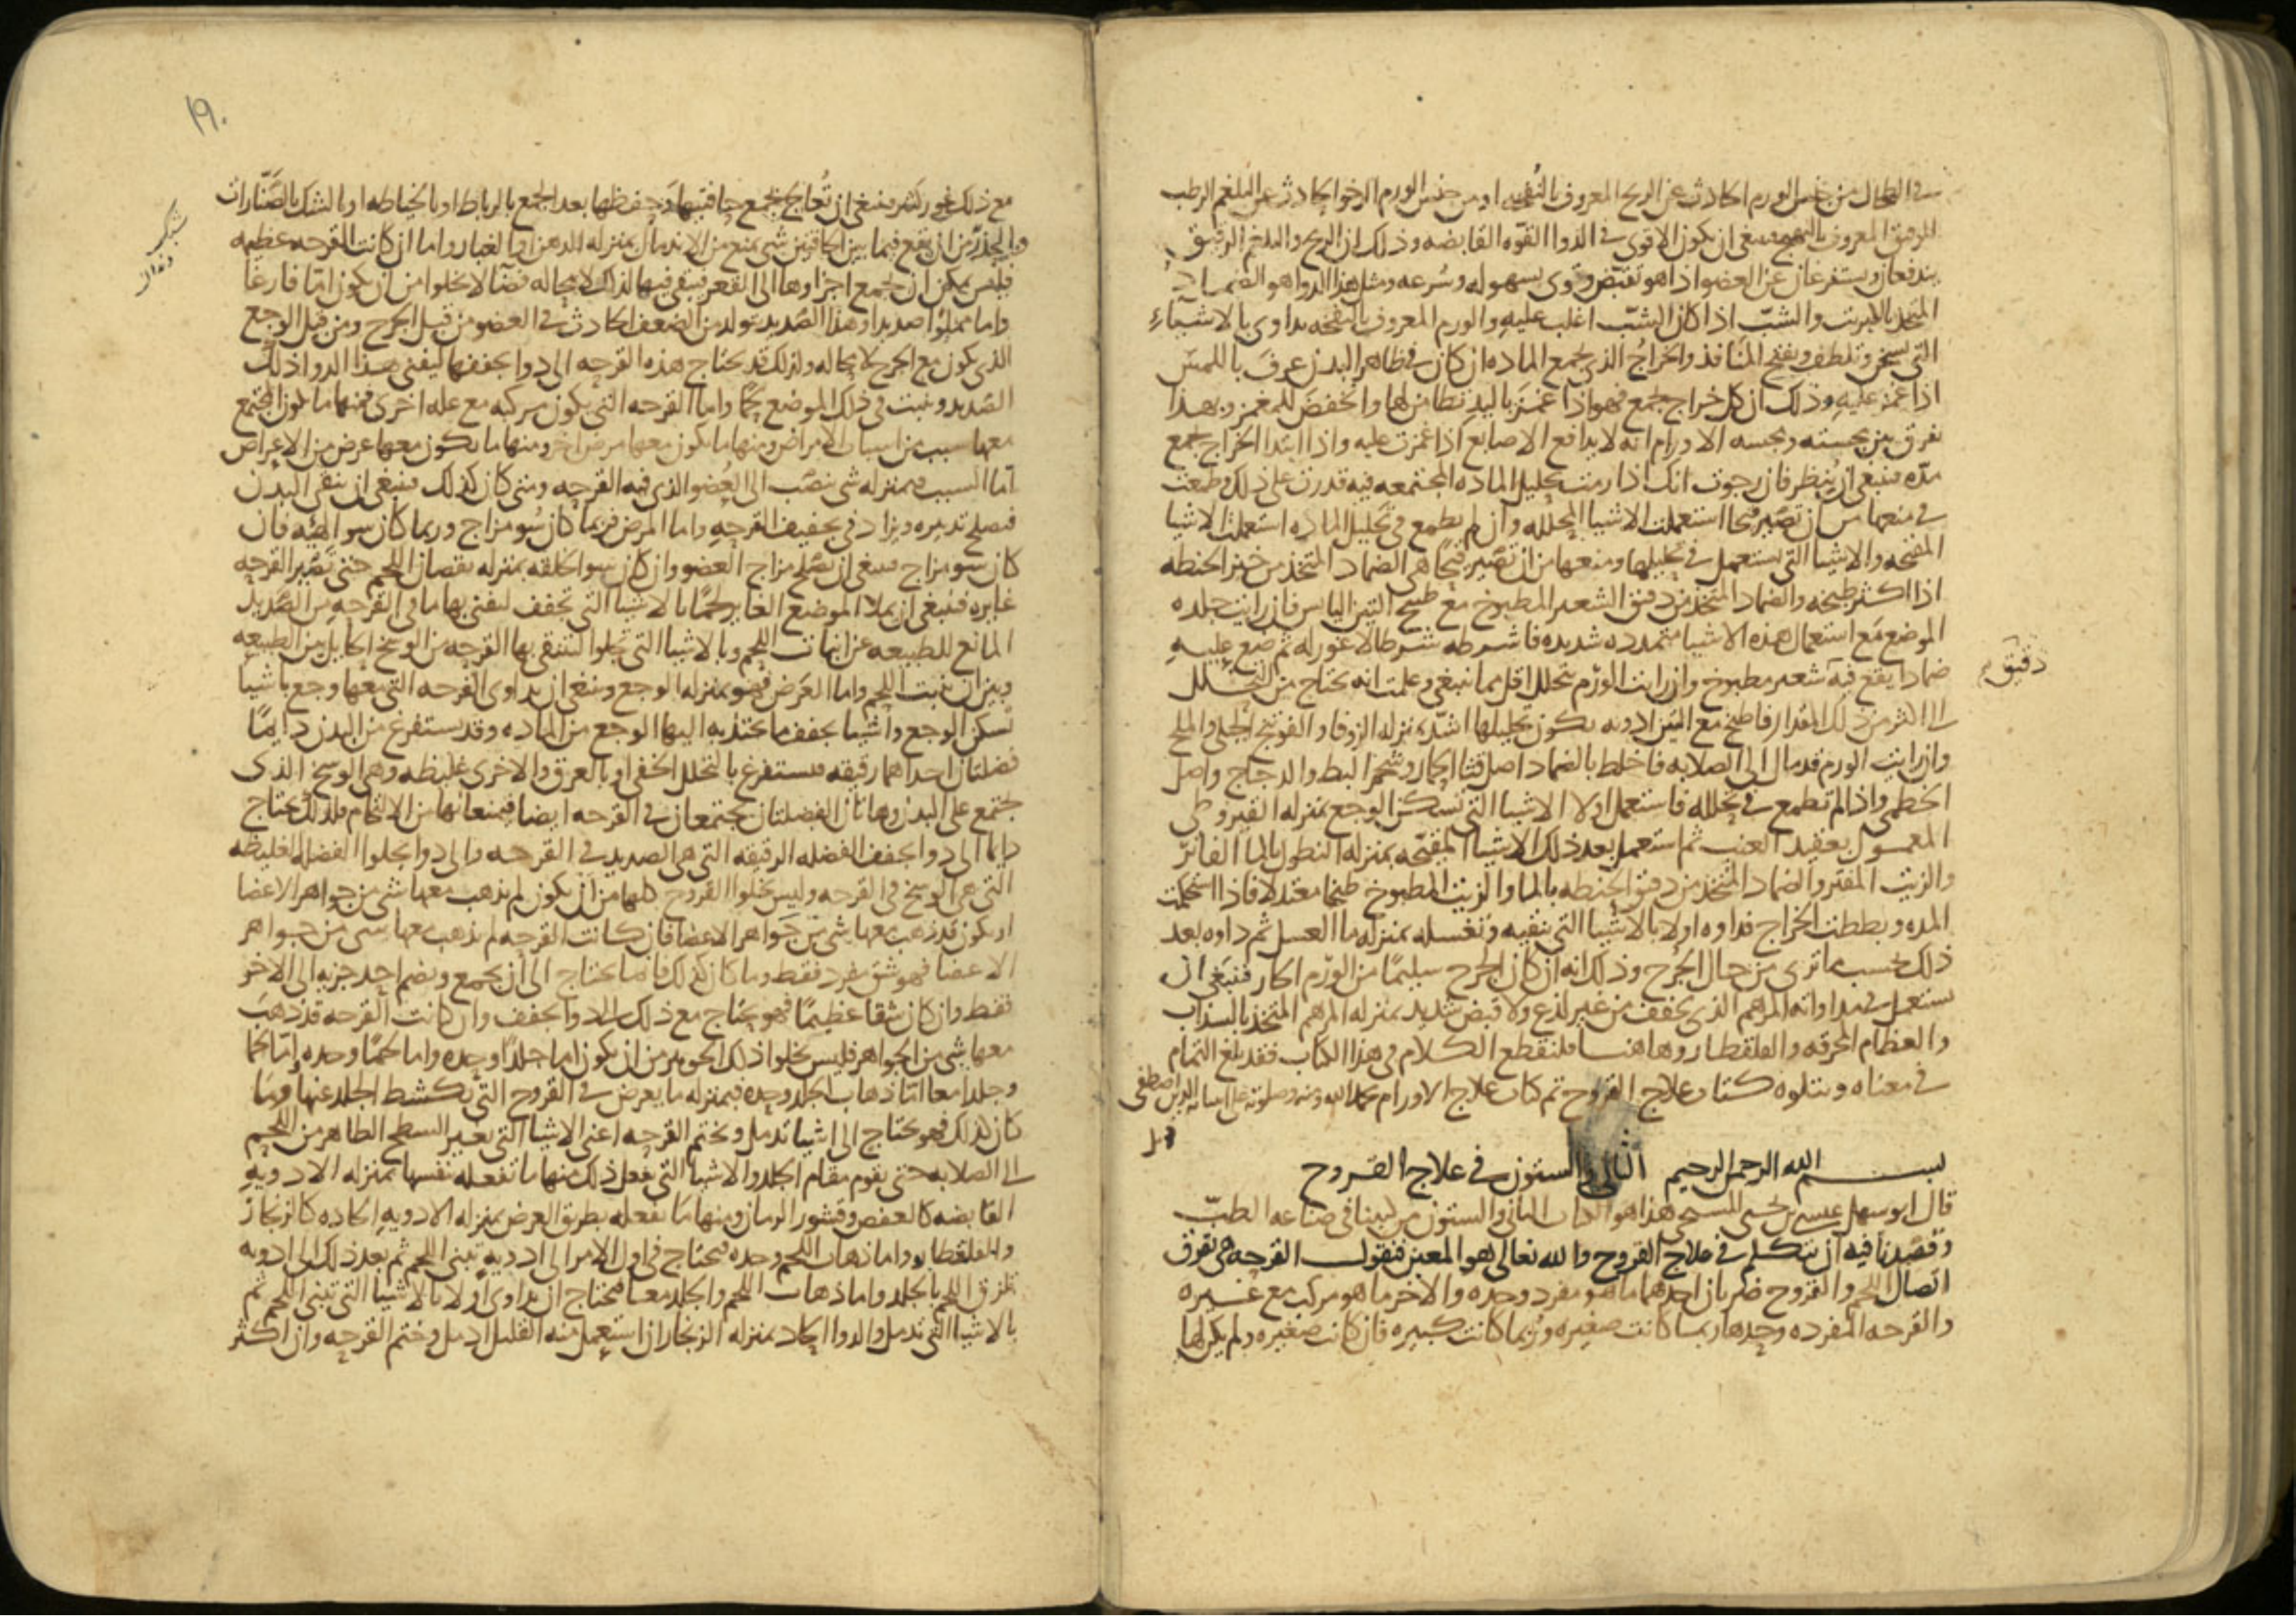 في الطحال من جنس الورم الحادث عن الريح المعروف بالنفخه او من جنس الورم الرخو الحادث عن البلغم الرطب
الرقيق المعروف بالتهبج فينبغي ان يكون الاقوى في الدوا القوه القابضه وذلك ان الريح والبلغم الرقيق
يندفعان ويستفرغان عن العضو اذا هو تقبض وقوى بسهوله وسرعه ومثل هذا الدوا هو الضماد
المتخذ بالكبريت والشب اذا كان الشب اغلب عليه والورم المعروف بالنفخه يداوى بالاشياء
التي تسخن وتلطف وتفتح المنافذ والخراج الذي يجمع الماده ان كان في ظاهر البدن عرف باللمس
اذا غمز عليه وذلك ان كل خراج يجمع فهو اذا غمز باليد تطامن لها وانخفض للمغمز وبهذا
نفرق بين مجسته ومجسه الاورام انه لا يدافع الاصابع اذا غمزت عليه واذا ابتدا الخراج يجمع
مده فينبغي ان ينظر فان رجوت انك اذا رمت تحليل الماده المجتمعه فيه قدرت على ذلك وطمعت
في منعها من ان تصير قيحا استعملت الاشيا المحلله وان لم تطمع في تحليل الماده استعملت الاشيا
المفتحه والاشيا التي تستعمل في تحليلها ومنعها من ان تصير قيحا هي الضماد المتخذ من خبز الحنطه
اذا اكثر طبخه والضماد المتخذ من دقيق الشعير المطبوخ مع طبيخ التين اليابس فان رايت جلده
الموضع مع استعمال هذه الاشيا متمدده شديده فاشرطه شرطا لا غور له ثم ضع عليه
ضمادا يقع فيه شعير مطبوخ وان رايت الورم تحلل اقل مما ينبغي وعلمت انه يحتاج من التحلل
دقيق
الى اكثر من ذلك المقدار فاطبخ مع التين ادويه يكون تحليلها اشد بمنزله الزوفا والفوتنج الجبلي والملح
وان رايت الورم قد مال الى الصلابه فاخلط بالضماد اصل قثا الحمار وشحم البط والدجاج واصل
الخطمي واذا لم تطمع في تحلله فاستعمل اولا الاشيا التي تسكن الوجع بمنزله القيروطي
المعمول بعقيد العنب ثم استعمل بعد ذلك الاشيا المفتحه بمنزله النطول بالما الفاتر
والزيت المفتر والضماد المتخذ من دقيق الحنطه بالما والزيت المطبوخ طبخا معتدلا فاذا استحكمت
المده وبططت الخراج فداوه اولا بالاشيا التي تنقيه وتغسله بمنزله ما العسل ثم داوه بعد
ذلك بحسب ما ترى من حال الجرح وذلك انه ان كان الجرح سليما من الورم الحار فينبغي ان
تستعمل في مداواته المرهم الذي يجفف من غير لذع ولا قبض شديد بمنزله المرهم المتخذ بالسذاب
والعظام المحرقه والقلقطار وهاهنا فلنقطع الكلام في هذا الكتاب فقد بلغ التمام
في معناه ويتلوه كتاب علاج القروح تم كتاب علاج الاورام بحمد الله ومنه وصلوته على انبيائه الذين اصطفى
بسم الله الرحمن الرحيم الثاني والستون في علاج القروح
قال ابو سهل عيسى بن يحيى المسيحي هذا هو الكتاب الثاني والستون من كتبنا في صناعه الطب
وقصدنا فيه ان نتكلم في علاج القروح والله تعالى هو المعين فنقول القرحه هي تفرق
اتصال اللحم والقروح ضربان احدهما ما هو مفرد وحده والاخر ما هو مركب مع غيره
والقرحه المفرده وحدها ربما كانت صغيره وربما كانت كبيره فان كانت صغيره ولم يكن لها
١٩٠
مع ذلك غور كثير فينبغي ان تعالج بجمع حافتيها وحفظها بعد الجمع بالرباط او بالخياطه او بالشك بالصنارات
وبالحذر من ان يقع فيما بين الحافتين شي يمنع من الاندمال بمنزله الدهن والغبار واما ان كانت القرحه عظيمه
فليس يمكن ان تجمع اجزاوها الى القعر فيبقى فيها لذلك لا محاله فضا لا يخلوا من ان يكون اما فارغا
واما مملوا صديدا وهذا الصديد يتولد من الضعف الحادث في العضو من قبل الجرح ومن قبل الوجع
الذي يكون مع الجرح لا محاله ولذلك قد يحتاج هذه القرحه الى دوا يجففها ليفنى هذا الدوا ذلك
الصديد وينبت في ذلك الموضع لحما واما القرحه التي يكون مركبه مع عله اخرى فمنها ما يكون المجتمع
معها سبب من اسباب الامراض ومنها ما يكون معها مرض اخر ومنها ما يكون معها عرض من الاعراض
اما السبب فبمنزله شي ينصب الى العضو الذي فيه القرحه ومتى كان كذلك فينبغي ان ينقى البدن
فيصلح تدبيره ويزاد في تجفيف القرحه واما المرض فربما كان سو مزاج وربما كان سو الهيئه فان
كان سو مزاج فينبغي ان يصلح مزاج العضو وان كان سو الخلقه بمنزله نقصان اللحم حتى تصير القرحه
غايره فينبغي ان يملا الموضع الغاير لحما بالاشيا التي تجفف ليفنى بها ما في القرحه من الصديد
المانع للطبيعه عن انبات اللحم وبالاشيا التي تجلوا لتنقى بها القرحه من الوسخ الحايل بين الطبيعه
وبين ان ينبت اللحم واما العرض فهو بمنزله الوجع وينبغي ان يداوى القرحه التي معها وجع باشيا
تسكن الوجع واشيا تجفف ما يجتذبه اليها الوجع من الماده وقد يستفرغ من البدن دايما
فضلتان احداهما رقيقه فتستفرغ بالتحلل الخفي او بالعرق والاخرى غليظه وهي الوسخ الذي
يجتمع على البدن وهاتان الفضلتان يجتمعان في القرحه ايضا فيمنعانها من الالتحام فلذلك يحتاج
دايما الى دوا يجفف الفضله الرقيقه التي هي الصديد في القرحه والى دوا يجلوا الفضله الغليظه
التي هي الوسخ في القرحه وليس تخلوا القروح كلها من ان يكون لم يذهب معها شي من جواهر الاعضا
او يكون قد ذهب معها شي من جواهر الاعضا فان كانت القرحه لم يذهب معها شي من جواهر
الاعضا فهو شق مفرد فقط وما كان كذلك فانما يحتاج الى ان يجمع ويضم احد جزيه الى الاخر
فقط وان كان شقا عظيما فهو يحتاج مع ذلك الى دوا يجفف وان كانت القرحه قد ذهب
معها شي من الجواهر فليس يخلوا ذلك الجوهر من ان يكون اما جلدا وحده واما لحما وحده واما لحما
وجلدا معا اما ذهاب الجلد وحده فبمنزله ما يعرض في القروح التي يكشط الجلد عنها وما
كان كذلك فهو يحتاج الى اشيا تدمل وتختم القرحه اعني الاشيا التي تغير السطح الظاهر من اللحم
الى الصلابه حتى يقوم مقام الجلد والاشيا التي تفعل ذلك منها ما تفعله نفسها بمنزله الادويه
القابضه كالعفص وقشور الرمان ومنها ما تفعله بطريق العرض بمنزله الادويه الحاده كالزنجار
والقلقطار واما ذهاب اللحم وحده فيحتاج في اول الامر الى ادويه تبني اللحم ثم بعد ذلك الى ادويه
تلزق اللحم بالجلد واما ذهاب اللحم والجلد معا فيحتاج ان يداوى اولا بالاشيا التي تبني اللحم ثم
بالاشيا التي تدمل والدوا الحاد بمنزله الزنجار ان استعمل منه القليل ادمل وختم القرحه وان اكثر